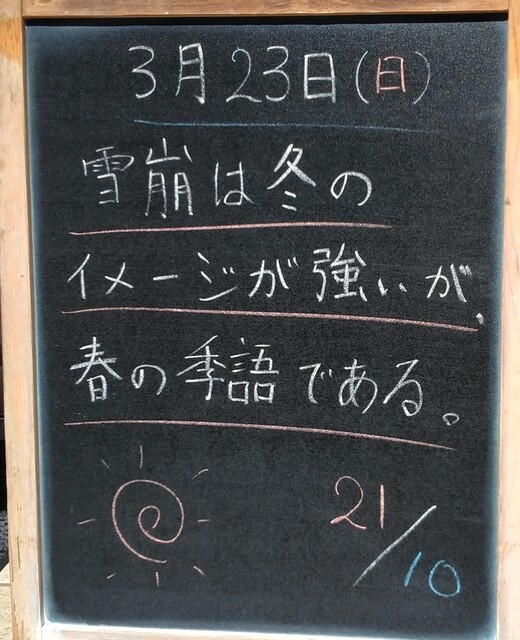 3月23日(日)
雪崩は冬の
イメージが強いが、
春の季語である。
21/10